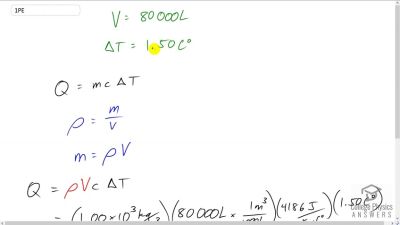 1PE
V = 80000L
ΔT = 1.50 C°
Q = mcΔT
ρ = m/V
m = ρV
Q = ρVcΔT
= (1.00 × 10³ kg/
(80000L × 1m³/
(4186 J/
(1.50 C°)
College Physics
ANSWERS